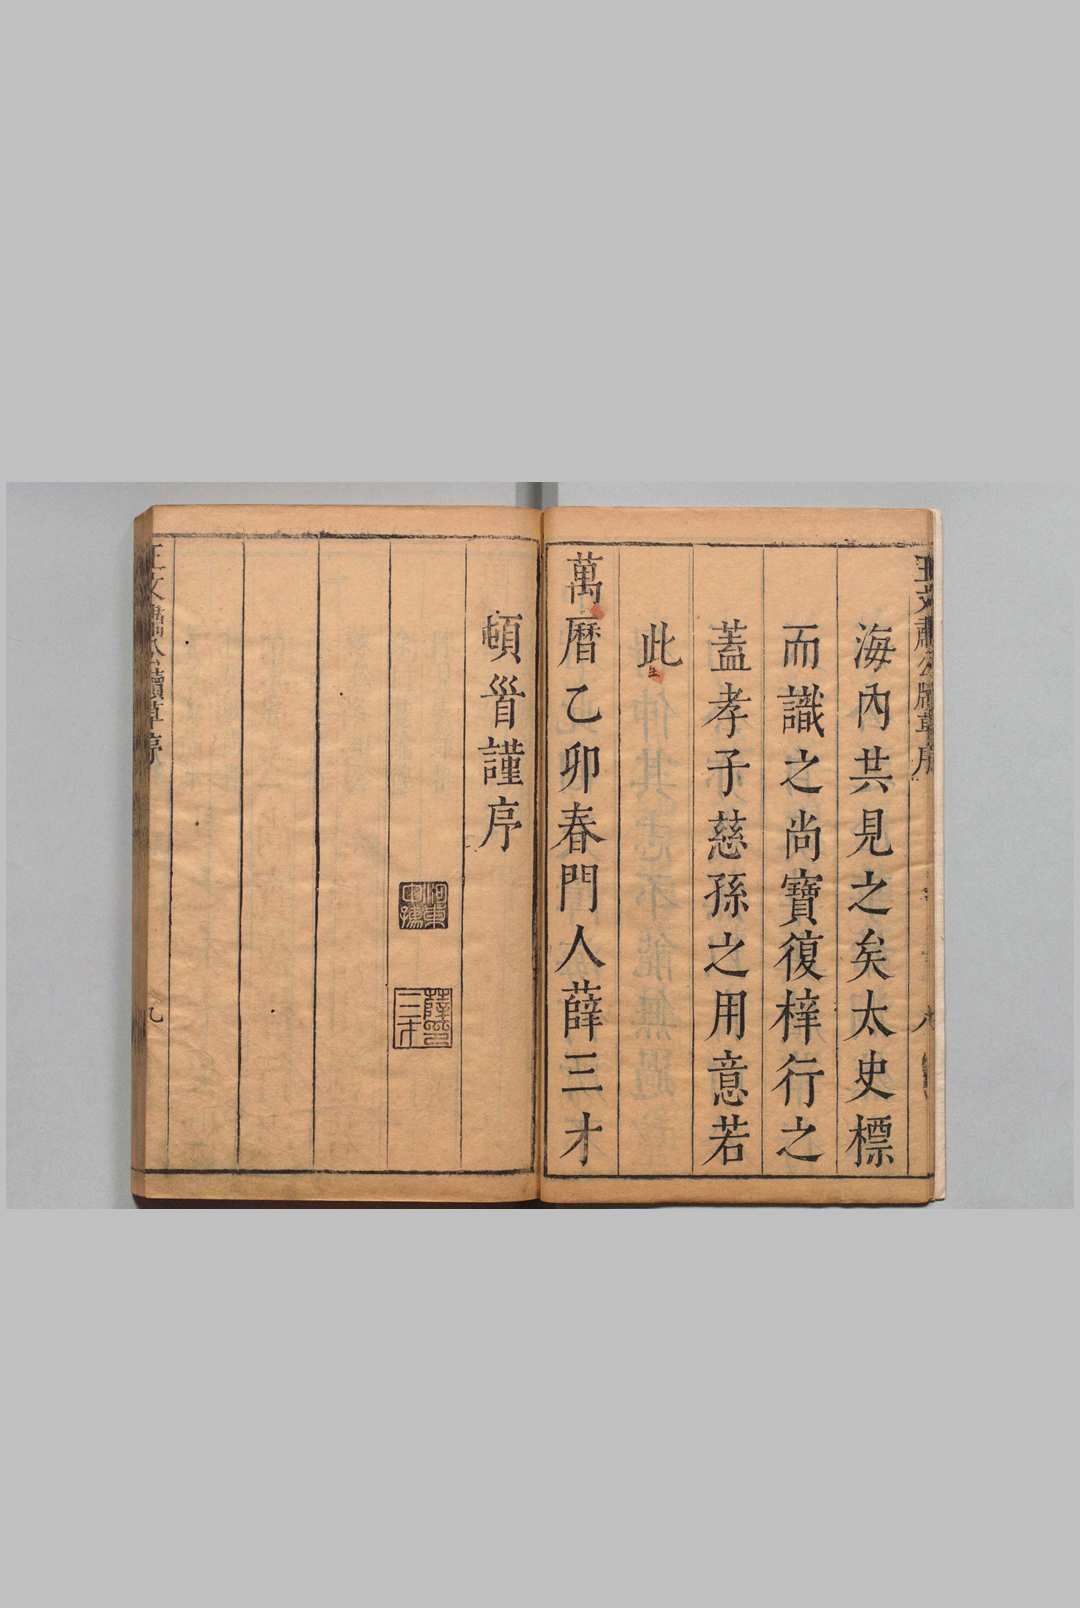 海內共見之矣太史標
而識之尚寶復梓行之
蓋孝子慈孫之用意若
此
萬曆乙卯春門人薛三才
頓首謹序
河東
薛三才
王文肅公牘草序
九